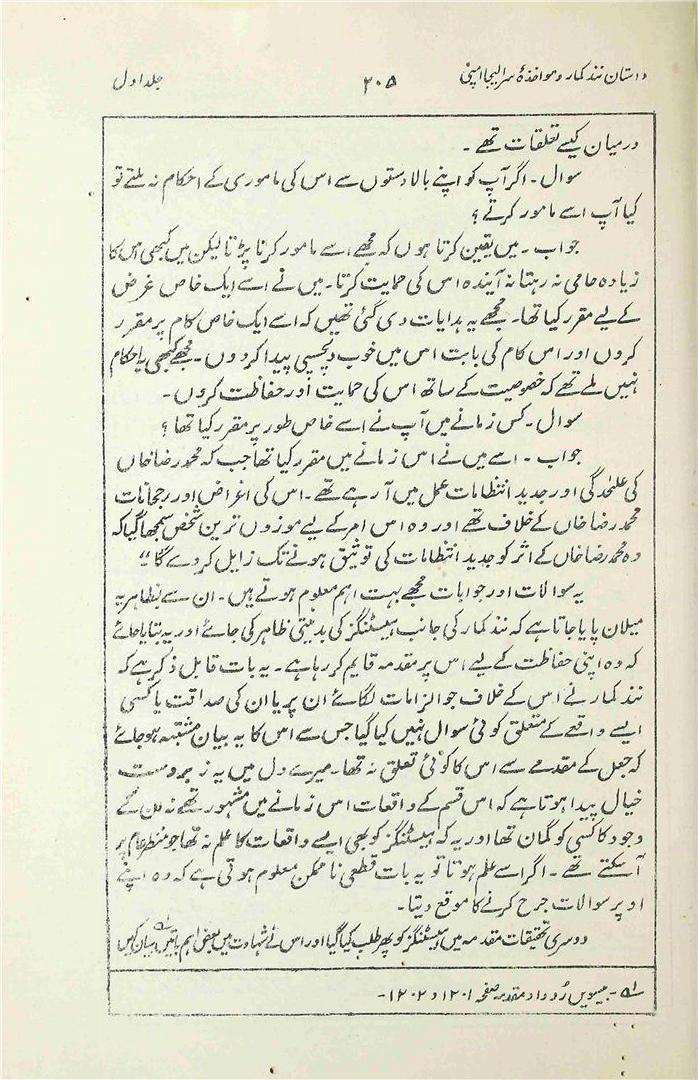 داستان نند کمار و مواخذۂ سر الیجا امپی
۲۰۵
جلد اول
درمیان کیسے تعلقات تھے ۔
سوال ۔ اگر آپ کو اپنے بالا دستوں سے اس کی ماموری کے احکام نہ ملتے تو
کیا آپ اسے مامور کرتے ؟
جواب ۔ میں یقین کرتا ہوں کہ مجھے اسے مامور کرنا پڑتا لیکن میں کبھی اس کا
زیادہ حامی نہ رہتا نہ آیندہ اس کی حمایت کرتا ۔ میں نے اسے ایک خاص غرض
کے لیے مقرر کیا تھا ۔ مجھے یہ ہدایات دی گئی تھیں کہ اسے ایک خاص کام پر مقرر
کروں اور اس کام کی بابت اس میں خوب دلچسپی پیدا کردوں ۔ مجھے کبھی یہ احکام
نہیں ملے تھے کہ خصوصیت کے ساتھ اس کی حمایت اور حفاظت کروں ۔
سوال ۔ کس زمانے میں آپ نے اسے خاص طور پر مقرر کیا تھا ؟
جواب ۔ اسے میں نے اس زمانے میں مقرر کیا تھا جب کہ محمد رضا خاں
کی علٰحدگی اور جدید انتظامات عمل میں آرہے تھے ۔ اس کی اغراض اور رجحانات
محمد رضا خاں کے خلاف تھے اور وہ اس امر کے لیے موزوں ترین شخص سمجھا گیا کہ
وہ محمد رضا خاں کے اثر کو جدید انتظامات کی توثیق ہونے تک زایل کردے گا ‘‘
یہ سوالات اور جوابات مجھے بہت اہم معلوم ہوتے ہیں ۔ ان سے بظاہر یہ
میلان پایا جاتا ہے کہ نند کمار کی جانب ہیسٹنگز کی بدنیتی ظاہر کی جائے اور یہ بتایا جائے
کہ وہ اپنی حفاظت کے لیے اس پر مقدمہ قایم کر رہا ہے ۔ یہ بات قابل ذکر ہے کہ
نند کمار نے اس کے خلاف جو الزامات لگائے ان پر یا ان کی صداقت یا کسی
ایسے واقعے کے متعلق کوئی سوال نہیں کیا گیا جس سے اس کا یہ بیان مشتبہ ہوجائے
کہ جعل کے مقدمے سے اس کا کوئی تعلق نہ تھا ۔ میرے دل میں یہ زبردست
خیال پیدا ہوتا ہے کہ اس قسم کے واقعات اس زمانے میں مشہور تھے نہ ان کے
وجود کا کسی کو گمان تھا اور یہ کہ ہیسٹنگز کو بھی ایسے واقعات کا علم نہ تھا جو منظر عام پر
آسکتے تھے ۔ اگر اسے علم ہوتا تو یہ بات قطعی ناممکن معلوم ہوتی ہے کہ وہ اپنے
اوپر سوالات جرح کرنے کا موقع دیتا ۔
دوسری تحقیقات مقدمہ میں ہیسٹنگز کو پھر طلب کیا گیا اور اس نے شہادت میں بعض اہم باتیں۱؎ بیان کیں
۱؎ ۔ بیسویں روداد مقدمہ صفحہ ۱۲۰۱ و ۱۲۰۲ ۔